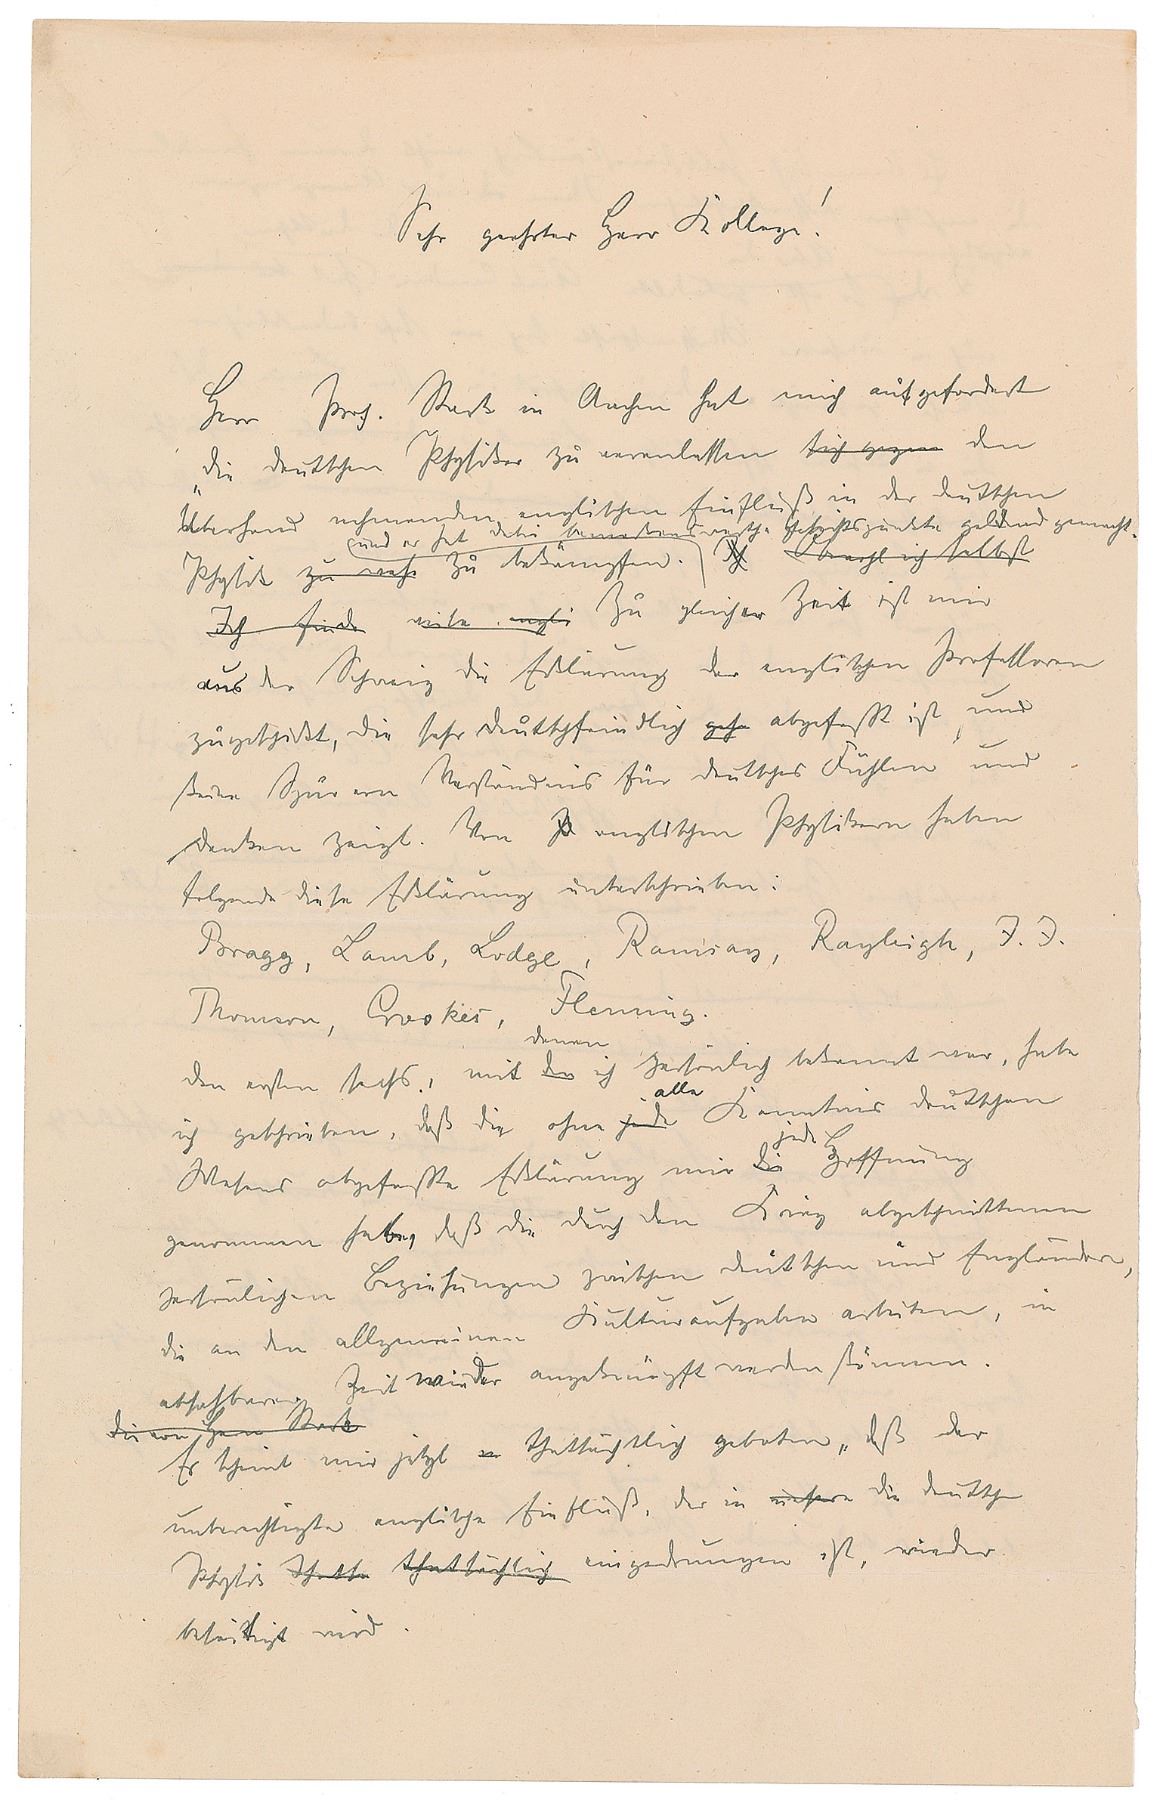 Sehr geehrter Herr Kollege!
Herr Prof. Stark in Aachen hat mich aufgefordert
die deutschen Physiker zu veranlassen sich gegen den
überhand nehmenden englischen Einfluß in der deutschen
und er hat dabei bemerkenswerthe Gesichtspunkte geltend gemacht.
Physik zu zu bekämpfen. Ich Obwohl ich selbst
Ich finde engli Zu gleicher Zeit ist mir
aus der Schweiz die Erklärung der englischen Professoren
zugeschickt, die sehr deutschfeindlich abgefasst ist, und
keine Spur von Verständnis für deutsches Fühlen und
Denken zeigt. Von englischen Physikern haben
folgende diese Erklärung unterschrieben:
Bragg, Lamb, Lodge, Ramsay, Rayleigh, J. J.
Thomson, Crookes, Fleming.
denen
den ersten sechs, mit den ich persönlich bekannt war, habe
alle
ich geschrieben, daß die ohne jede Kenntnis deutschen
jede
Wesens abgefasste Erklärung mir die Hoffnung
genommen habe, daß die durch den Krieg abgeschnittenen
persönlichen Beziehungen zwischen Deutschen und Engländern,
die an den allgemeinen Kulturaufgaben arbeiten, in
absehbarer Zeit wieder angeknüpft werden können.
Die von Herrn Stark
Es scheint mir jetzt thatsächlich geboten, daß der
unberechtigte englische Einfluß, der in unsere die deutsche
Physik thatsächlich eingedrungen ist, wieder
beseitigt wird.